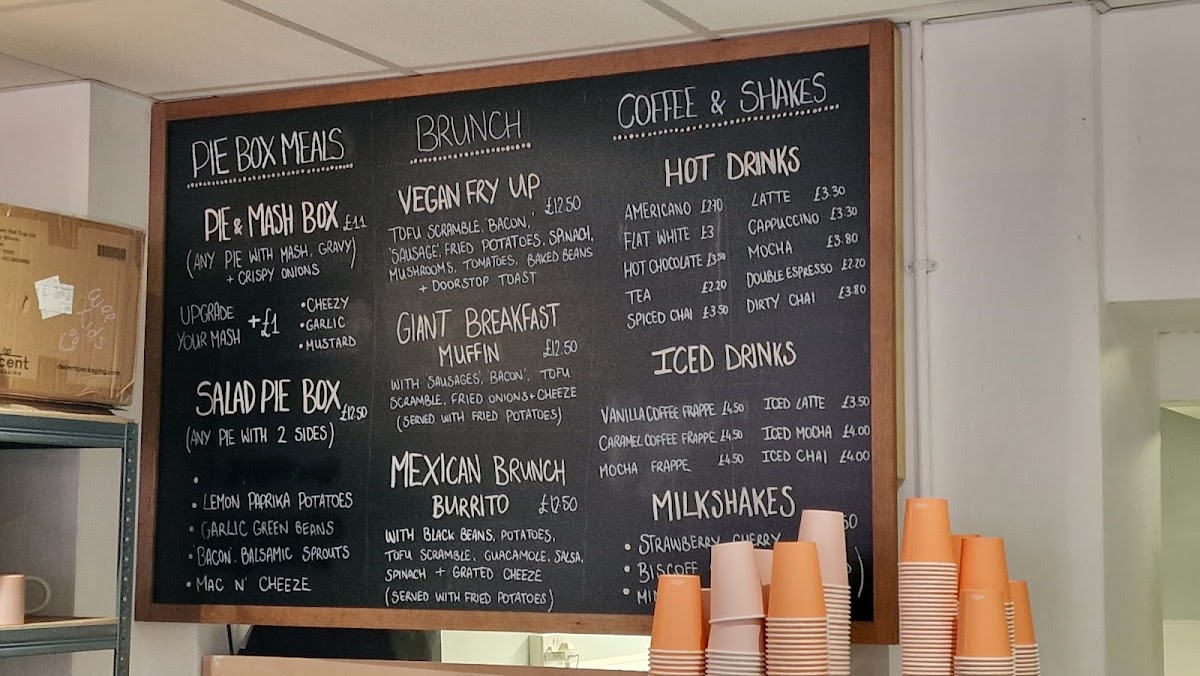 PIE BOX MEALS
PIE & MASH BOX £11
(ANY PIE WITH MASH, GRAVY)
+ CRISPY ONIONS
UPGRADE
YOUR MASH
+£1
• CHEEZY
• GARLIC
• MUSTARD
SALAD PIE BOX £12.50
(ANY PIE WITH 2 SIDES)
•
• LEMON PAPRIKA POTATOES
• GARLIC GREEN BEANS
• 'BACON' BALSAMIC SPROUTS
• MAC N' CHEEZE
BRUNCH
VEGAN FRY UP £12.50
TOFU SCRAMBLE, 'BACON,'
'SAUSAGE', FRIED POTATOES, SPINASH,
MUSHROOMS, TOMATOES, BAKED BEANS
+ DOORSTOP TOAST
GIANT BREAKFAST
MUFFIN £12.50
WITH 'SAUSAGES', 'BACON', TOFU
SCRAMBLE, FRIED ONIONS + CHEEZE
(SERVED WITH FRIED POTATOES)
MEXICAN BRUNCH
BURRITO £12.50
WITH BLACK BEANS, POTATOES,
TOFU SCRAMBLE, GUACAMOLE, SALSA,
SPINACH + GRATED CHEEZE
(SERVED WITH FRIED POTATOES)
COFFEE & SHAKES
HOT DRINKS
AMERICANO £2.70
FLAT WHITE £3
HOT CHOCOLATE £3.50
TEA £2.20
SPICED CHAI £3.50
LATTE £3.30
CAPPUCCINO £3.30
MOCHA £3.80
DOUBLE ESPRESSO £2.20
DIRTY CHAI £3.80
ICED DRINKS
VANILLA COFFEE FRAPPE £4.50
CARAMEL COFFEE FRAPPE £4.50
MOCHA FRAPPE £4.50
ICED LATTE £3.50
ICED MOCHA £4.00
ICED CHAI £4.00
MILKSHAKES
• STRAWBERRY CHERRY
• BISCOFF